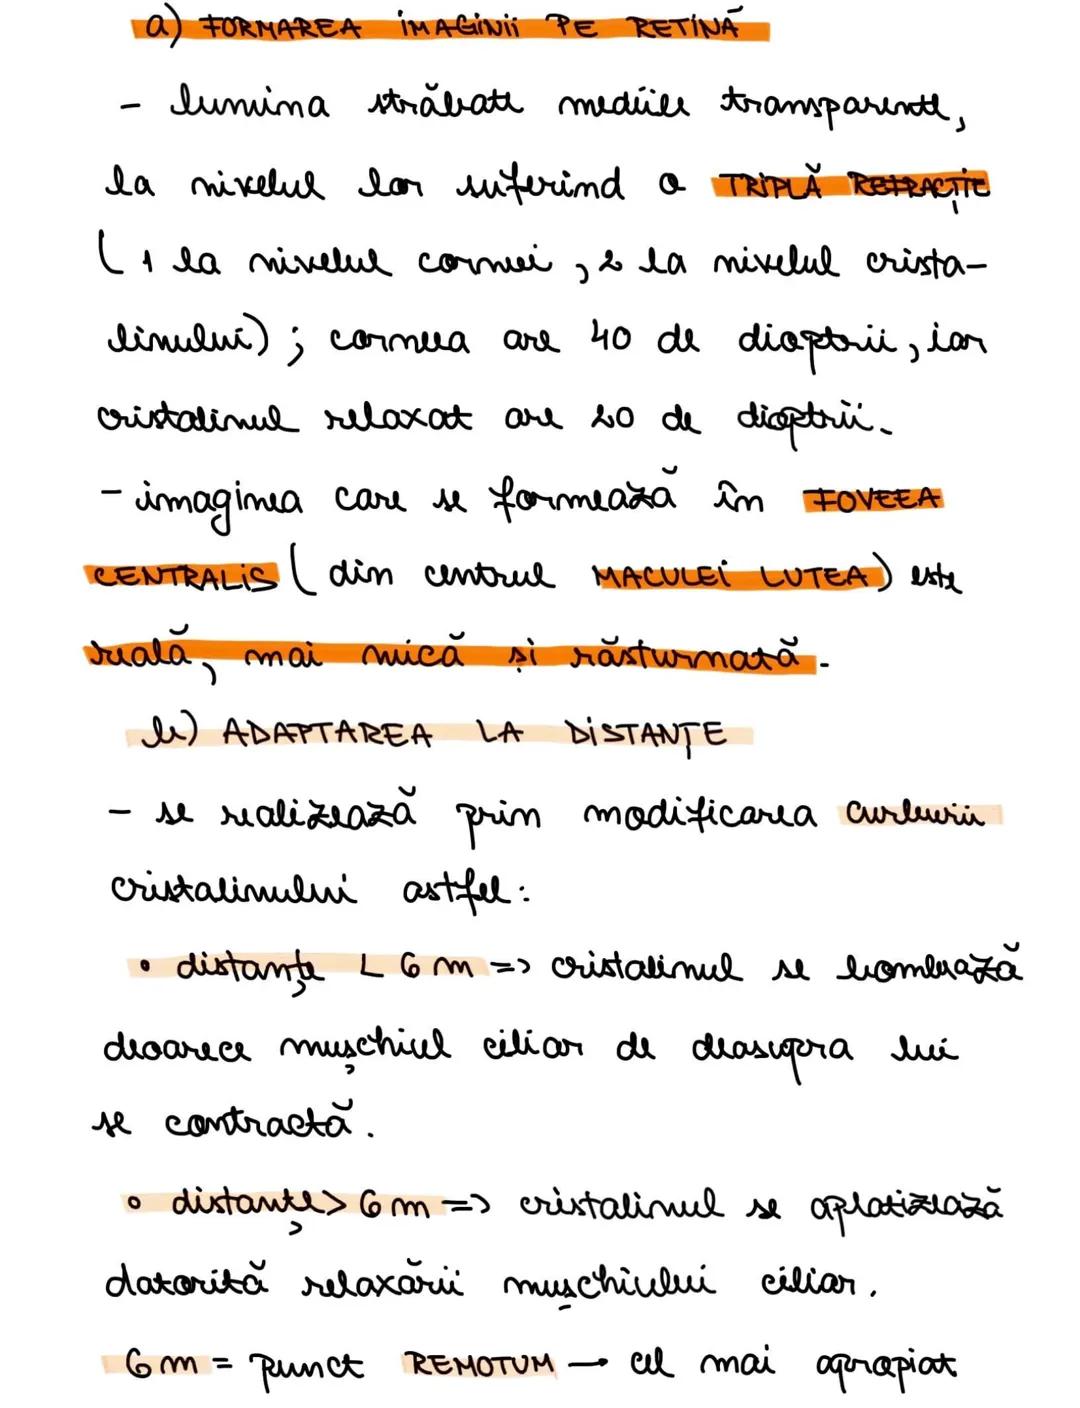 a) FORMAREA IMAGINII PE RETINĂ
- lumina străbate mediile transparente,
la nivelul lor suferind o TRIPLĂ REFRACȚIE
(1 la nivelul corneei, 2 la nivelul crista-
linului); corneea are 40 de dioptrii, iar
cristalinul relaxat are 20 de dioptrii.
- imaginea care se formează în FOVEEA
CENTRALIS (din centrul MACULEI LUTEA) este
reală, mai mică și răsturnată.
b) ADAPTAREA LA DISTANȚE
- se realizează prin modificarea curburii
cristalinului astfel:
• distanțe < 6 m => cristalinul se bombează
deoarece mușchiul ciliar de deasupra lui
se contractă.
• distanțe > 6 m => cristalinul se aplatizează
datorită relaxării mușchiului ciliar.
6 m = punct REMOTUM → cel mai apropiat